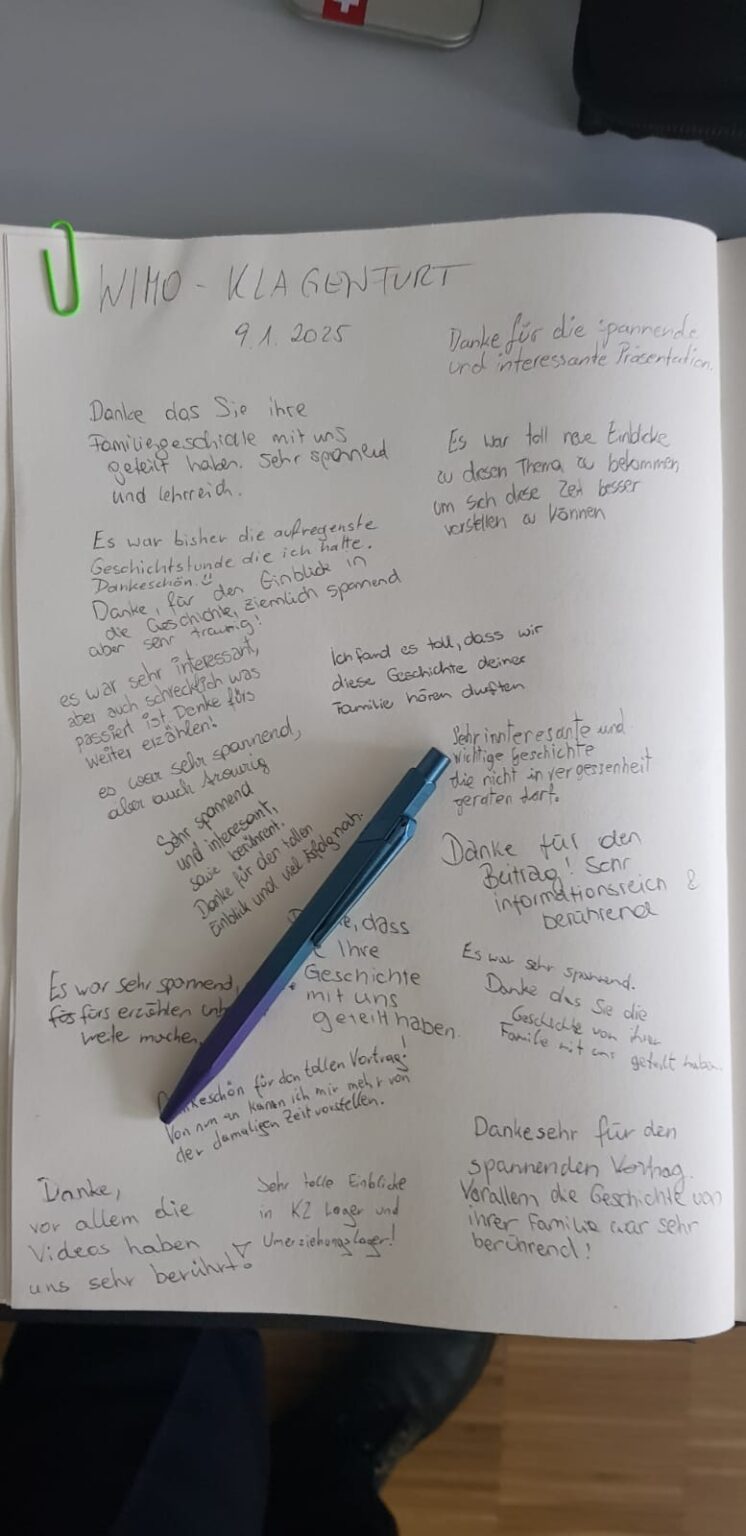 WIMO - KLAGENFURT
9.1.2025
Danke für die spannende
und interessante Präsentation.
Danke das Sie ihre
Familiengeschichte mit uns
geteilt haben. Sehr spannend
und lehrreich.
Es war toll neue Einblicke
zu diesen Thema zu bekommen
um sich diese Zeit besser
vorstellen zu können
Es war bisher die aufregenste
Geschichtstunde die ich hatte.
Dankeschön.
Danke, für den Einblick in
die Geschichte, ziemlich spannend
aber sehr traurig!
Ich fand es toll, dass wir
diese Geschichte deiner
Familie hören durften
es war sehr interessant,
aber auch schrecklich was
passiert ist. Danke fürs
weiter erzählen!
es war sehr spannend,
aber auch traurig
Sehr innteresante und
wichtige Geschichte
die nicht in vergessenheit
geraten darf.
Sehr spannend
und interesant,
sowie berührent.
Danke für den tollen
Einblick und viel Erfolg noch.
Danke für den
Beitrag! Sehr
informationsreich &
berührend
dass
Ihre
Geschichte
mit uns
geteilt haben.
Es war sehr spannend.
Danke das Sie die
Geschichte von ihrer
Familie mit uns geteilt haben.
Es war sehr spannend,
fürs erzählen
weite machen
Dankeschön für den tollen Vortrag!
Von nun an kann ich mir mehr von
der damaligen Zeit vorstellen.
Dankesehr für den
spannenden Vortrag.
Vorallem die Geschichte von
ihrer Familie war sehr
berührend!
Danke,
vor allem die
Videos haben
uns sehr berührt!
Sehr tolle Einblicke
in KZ Lager und
Umerziehungslager!